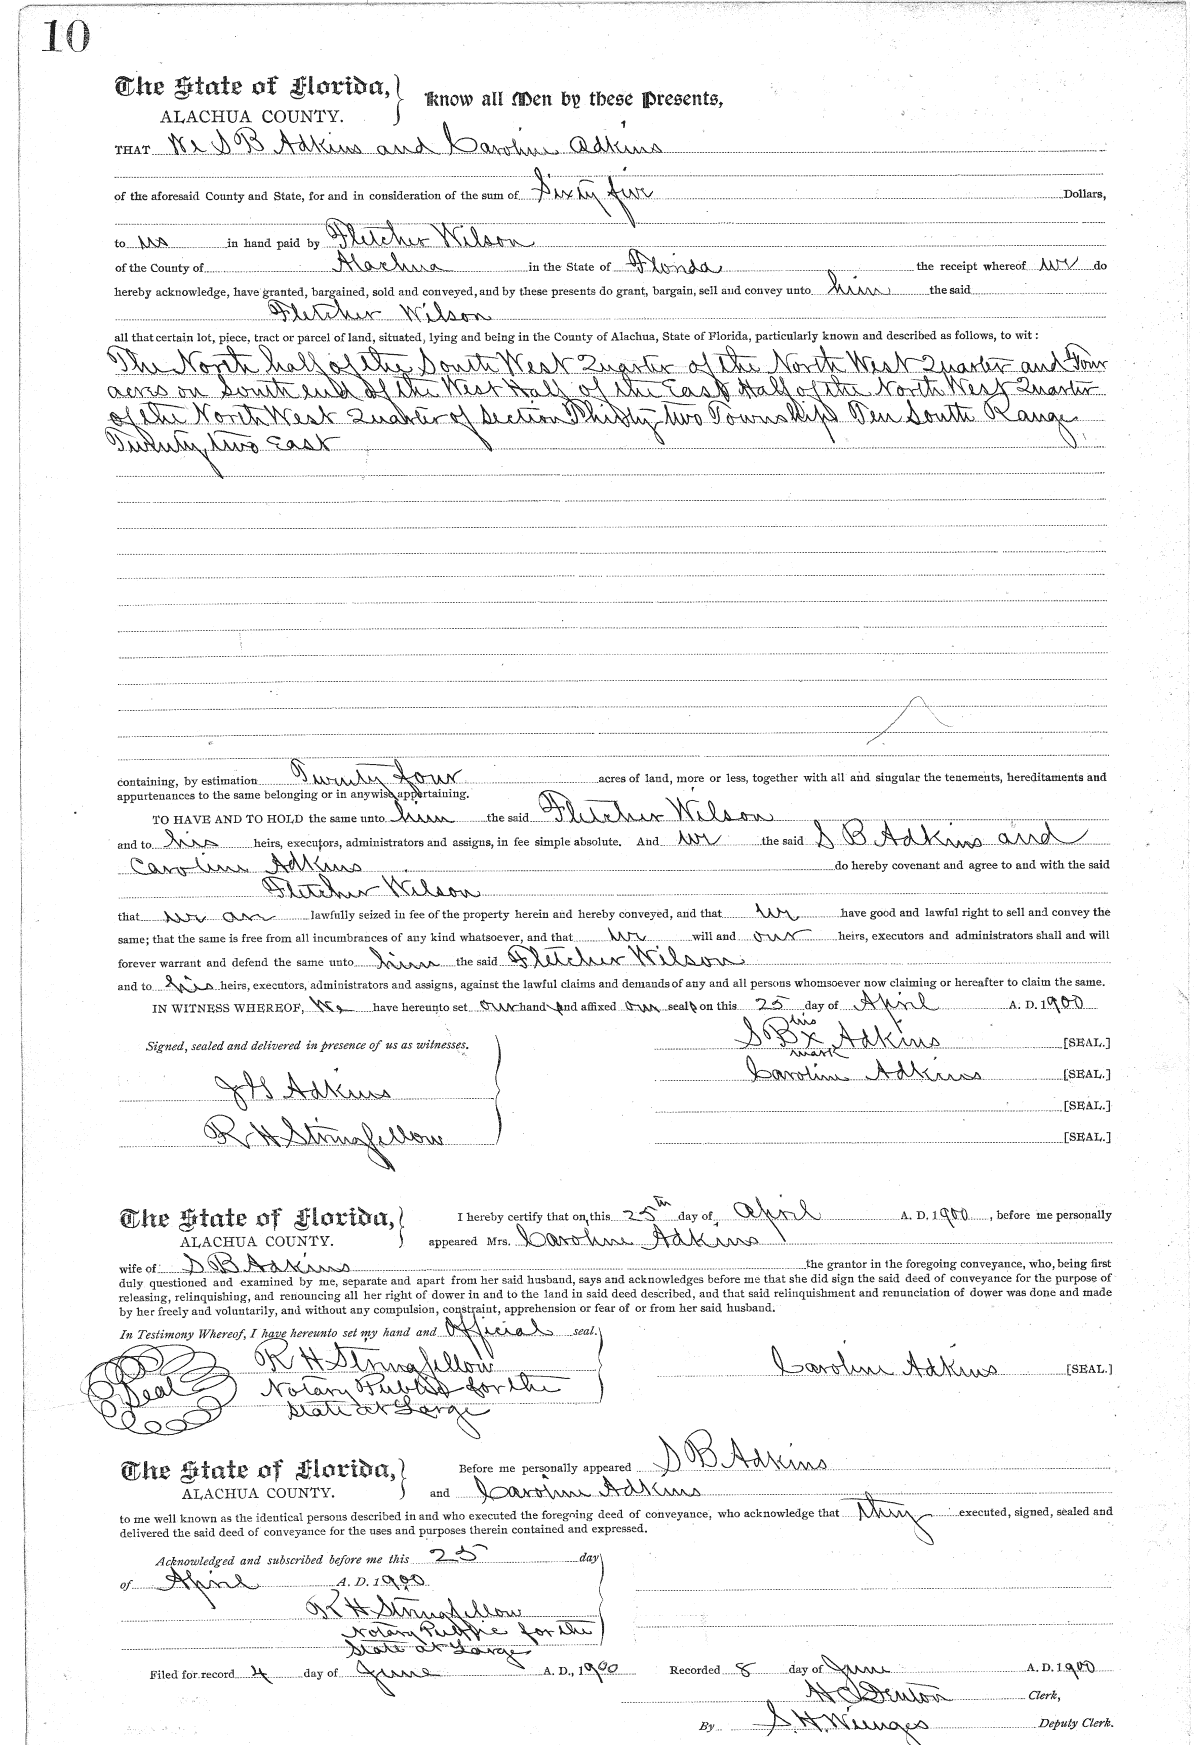 10
The State of Florida,
ALACHUA COUNTY.
Know all Men by these Presents,
THAT We S B Adkins and Caroline Adkins
of the aforesaid County and State, for and in consideration of the sum of Sixty five Dollars,
to us in hand paid by Fletcher Wilson
of the County of Alachua in the State of Florida the receipt whereof we do
hereby acknowledge, have granted, bargained, sold and conveyed, and by these presents do grant, bargain, sell and convey unto him the said
Fletcher Wilson
all that certain lot, piece, tract or parcel of land, situated, lying and being in the County of Alachua, State of Florida, particularly known and described as follows, to wit:
The North half of the South West Quarter of the North West Quarter and Four
acres on South end of the West Half of the East Half of the North West Quarter
of the North West Quarter of Section Thirty-two Townships Ten South Range
Twenty two East
containing, by estimation Twenty four acres of land, more or less, together with all and singular the tenements, hereditaments and
appurtenances to the same belonging or in anywise appertaining.
TO HAVE AND TO HOLD the same unto him the said Fletcher Wilson
and to his heirs, executors, administrators and assigns, in fee simple absolute. And we the said S B Adkins and
Caroline Adkins do hereby covenant and agree to and with the said
Fletcher Wilson
that we are lawfully seized in fee of the property herein and hereby conveyed, and that we have good and lawful right to sell and convey the
same; that the same is free from all incumbrances of any kind whatsoever, and that we will and our heirs, executors and administrators shall and will
forever warrant and defend the same unto him the said Fletcher Wilson
and to his heirs, executors, administrators and assigns, against the lawful claims and demands of any and all persons whomsoever now claiming or hereafter to claim the same.
IN WITNESS WHEREOF, We have hereunto set our hand and affixed our seals on this 25 day of April A. D. 1900
his
S B x Adkins [SEAL.]
mark
Signed, sealed and delivered in presence of us as witnesses.
Caroline Adkins [SEAL.]
J G Adkins
[SEAL.]
R H Stringfellow
[SEAL.]
The State of Florida,
ALACHUA COUNTY.
I hereby certify that on this 25th day of April A. D. 1900, before me personally
appeared Mrs. Caroline Adkins
wife of S B Adkins the grantor in the foregoing conveyance, who, being first
duly questioned and examined by me, separate and apart from her said husband, says and acknowledges before me that she did sign the said deed of conveyance for the purpose of
releasing, relinquishing, and renouncing all her right of dower in and to the land in said deed described, and that said relinquishment and renunciation of dower was done and made
by her freely and voluntarily, and without any compulsion, constraint, apprehension or fear of or from her said husband.
In Testimony Whereof, I have hereunto set my hand and official seal.
R H Stringfellow
Caroline Adkins [SEAL.]
Seal
Notary Public for the
State at Large
The State of Florida,
ALACHUA COUNTY.
Before me personally appeared S B Adkins
and Caroline Adkins
to me well known as the identical persons described in and who executed the foregoing deed of conveyance, who acknowledge that they executed, signed, sealed and
delivered the said deed of conveyance for the uses and purposes therein contained and expressed.
Acknowledged and subscribed before me this 25 day
of April A. D. 1900
R H Stringfellow
Notary Public for the
State at Large
Filed for record 4 day of June A. D., 1900 Recorded 8 day of June A. D. 1900
H C Denton Clerk,
By S. H. Wienges Deputy Clerk.